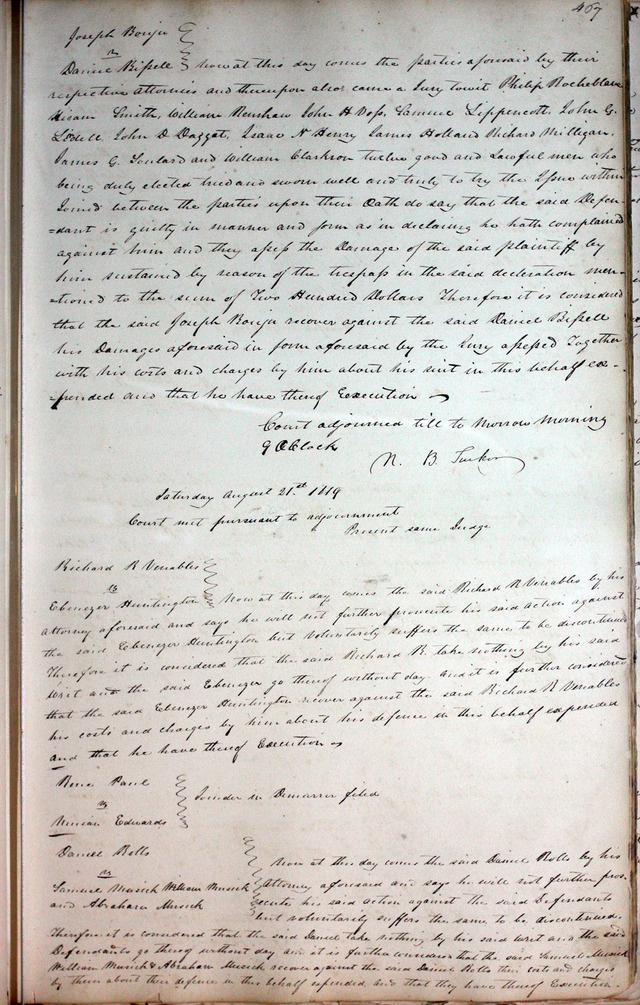 467
Joseph Bouju
vs
Daniel Bissell } Now at this day comes the parties aforesaid by their
respective attornies and thereupon also came a Jury towit Philip Rocheblave
Hiram Smith, William Renshaw John H Voss, Samuel Lippencott, John G.
Lodell John D Daggat, Isaac N Henry James Holland Richard Milligan,
James G. Soulard and William Clarkson twelve good and Lawful men who
being duly elected tried and sworn well and truly to try the Issue within
Joined between the parties upon their Oath do say that the said Defen-
=dant is guilty in manner and form as in declaring he hath complained
against him and they assess the Damage of the said plaintiff by
him sustained by reason of the trespass in the said declaration men-
=tioned to the sum of Two Hundred Dollars Therefore it is considered
that the said Joseph Bouju recover against the said Daniel Bissell
his Damages aforesaid in form aforesaid by the Jury assessed Together
with his costs and charges by him about his suit in this behalf ex-
=pended and that he have thereof Execution
Court adjourned till to Morrow Morning
9 OClock
N. B. Tucker
Saturday August 21st 1819
Court met pursuant to adjournment
Present same Judge
Richard R Venables
vs
Ebenezer Huntington } Now at this day comes the said Richard R Venables by his
attorney aforesaid and says he will not further prosecute his said action against
the said Ebenezer Huntington but voluntarily suffers the same to be discontinued
Therefore it is considered that the said Richard R. take nothing by his said
writ and the said Ebenezer go thereof without day and it is further considered
that the said Ebenezer Huntington recover against the said Richard R Venables
his costs and charges by him about his defence in this behalf expended
and that he have thereof Execution
Rene Paul
vs } Joinder in Demurrer filed
Ninian Edwards
Daniel Bolls
vs } Now at this day comes the said Daniel Bolls by his
Samuel Musick William Musick } Attorney aforesaid and says he will not further pros-
and Abraham Musick } ecute his said action against the said Defendants
but voluntarily suffers the same to be discontinued.
Therefore it is considered that the said Daniel take nothing by his said writ and the said
Defendants go thereof without day and it is further considered that the said Samuel Musick
William Musick & Abraham Musick recover against the said Daniel Bolls their costs and charges
by them about their defence in this behalf expended, and that they have thereof Execution